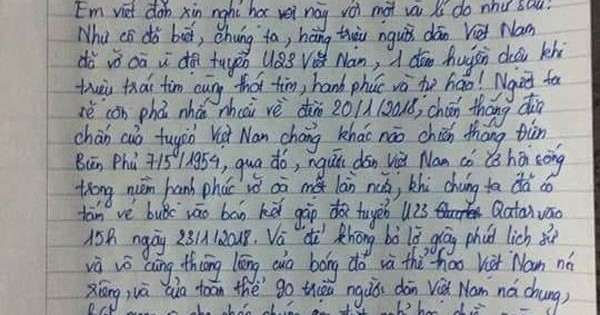 Em viết đơn xin nghỉ học với này với một vài lí do như sau:
Như cô đã biết, chúng ta, hàng triệu người dân Việt Nam
đã vỡ oà vì đội tuyển U23 Việt Nam, 1 đêm huyền diệu khi
triệu trái tim cùng thổn tim, hạnh phúc và tự hào! Người ta
sẽ còn phải nhắc nhiều về đêm 20/1/2018, chiến thắng đưa
chân của tuyển Việt Nam chẳng khác nào chiến thắng Điện
Biên Phủ 7/5/1954, qua đó, người dân Việt Nam có cơ hội sống
trong niềm hạnh phúc vỡ oà một lần nữa, khi chúng ta đã có
tấm vé bước vào bán kết gặp đội tuyển U23 Qatar vào
15h ngày 23/1/2018. Và để không bỏ lỡ giây phút lịch sử
và vô cùng thiêng liêng của bóng đá và thể thao Việt Nam nói
riêng, và của toàn thể 90 triệu người dân Việt Nam nói chung,